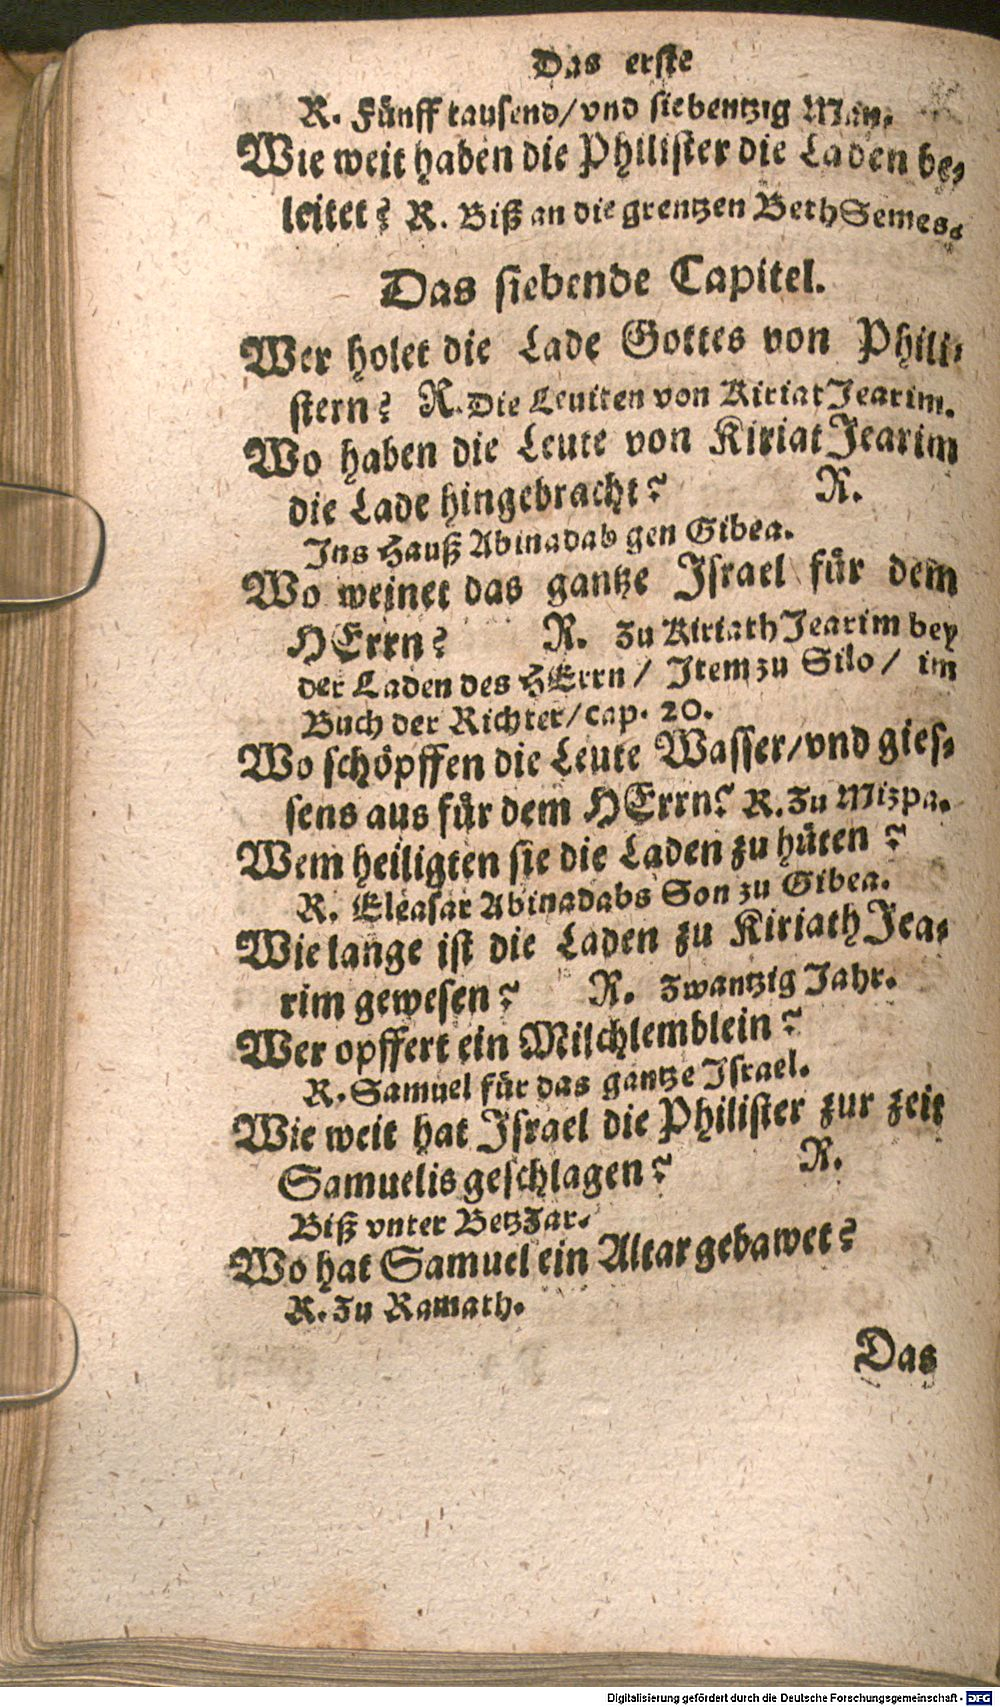 Das erste
R. Fünff tausend/vnd siebentzig Man.
Wie weit haben die Philister die Laden be-
leitet? R. Biß an die grentzen BethSemes.
Das siebende Capitel.
Wer holet die Lade Gottes von Phili-
stern? R. Die Leuiten von KiriatJearim.
Wo haben die Leute von KiriatJearim
die Lade hingebracht? R.
Ins Hauß Abinadab gen Gibea.
Wo weinet das gantze Israel für dem
HErrn? R. Zu KiriathJearim bey
der Laden des HErrn/ Item zu Silo/ im
Buch der Richter/cap. 20.
Wo schöpffen die Leute Wasser/vnd gies-
sens aus für dem HErrn? R. Zu Mizpa.
Wem heiligten sie die Laden zu hüten?
R. Eleasar Abinadabs Son zu Gibea.
Wie lange ist die Laden zu KiriathJea-
rim gewesen? R. Zwantzig Jahr.
Wer opffert ein Milchlemblein?
R. Samuel für das gantze Israel.
Wie weit hat Israel die Philister zur zeit
Samuelis geschlagen? R.
Biß vnter BetzZar.
Wo hat Samuel ein Altar gebawet?
R. Zu Ramath.
Das
Digitalisierung gefördert durch die Deutsche Forschungsgemeinschaft - DFG